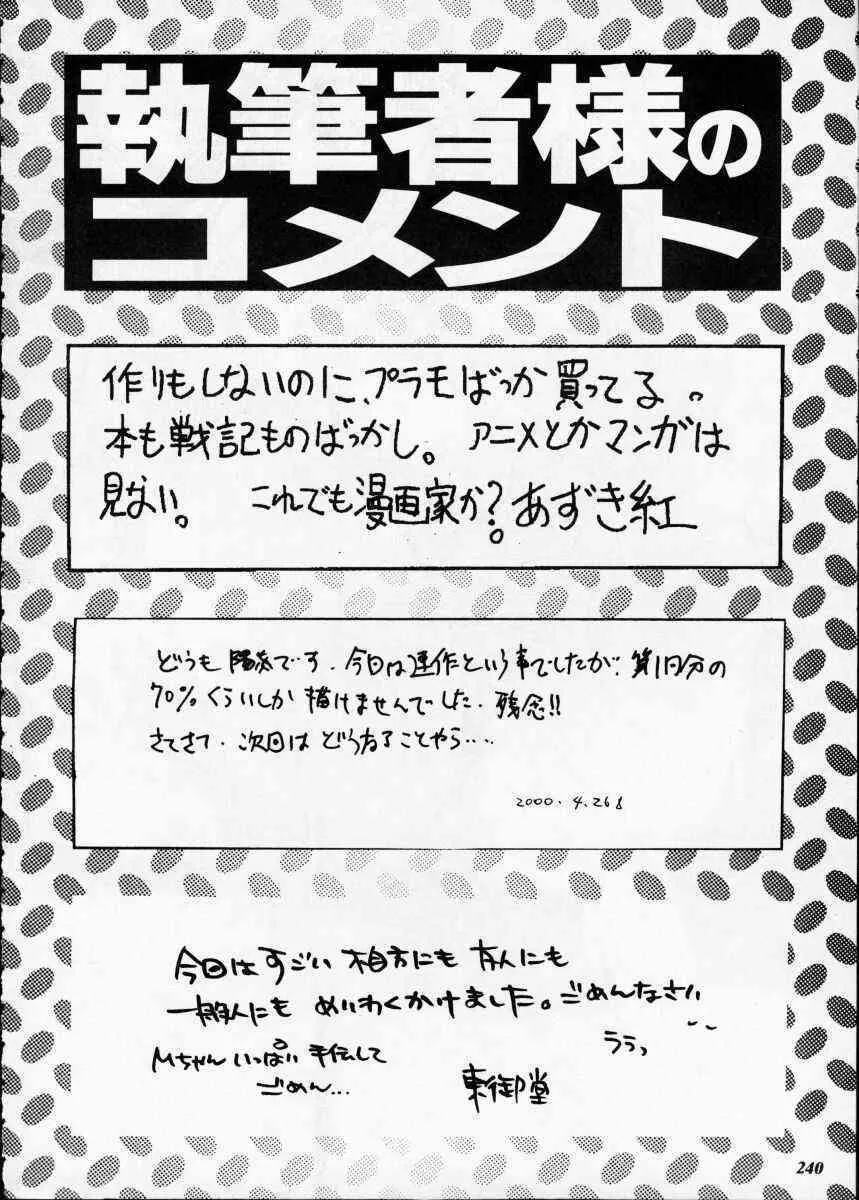 執筆者様の
コメント
作りもしないのに、プラモばっか買ってる。
本も戦記ものばっかし。アニメとかマンガは
見ない。これでも漫画家か?あずき紅
どうも陽炎です。今日は連作という事でしたが、第1回分の
70%くらいしか描けませんでした。残念!!
さてさて、次回はどうなることやら‥‥
2000.4.26
今回はすごい相方にも友人にも
一般人にもめいわくかけました。ごめんなさい
ううっ
Mちゃんいっぱい手伝して
ごめん...
東御堂
240